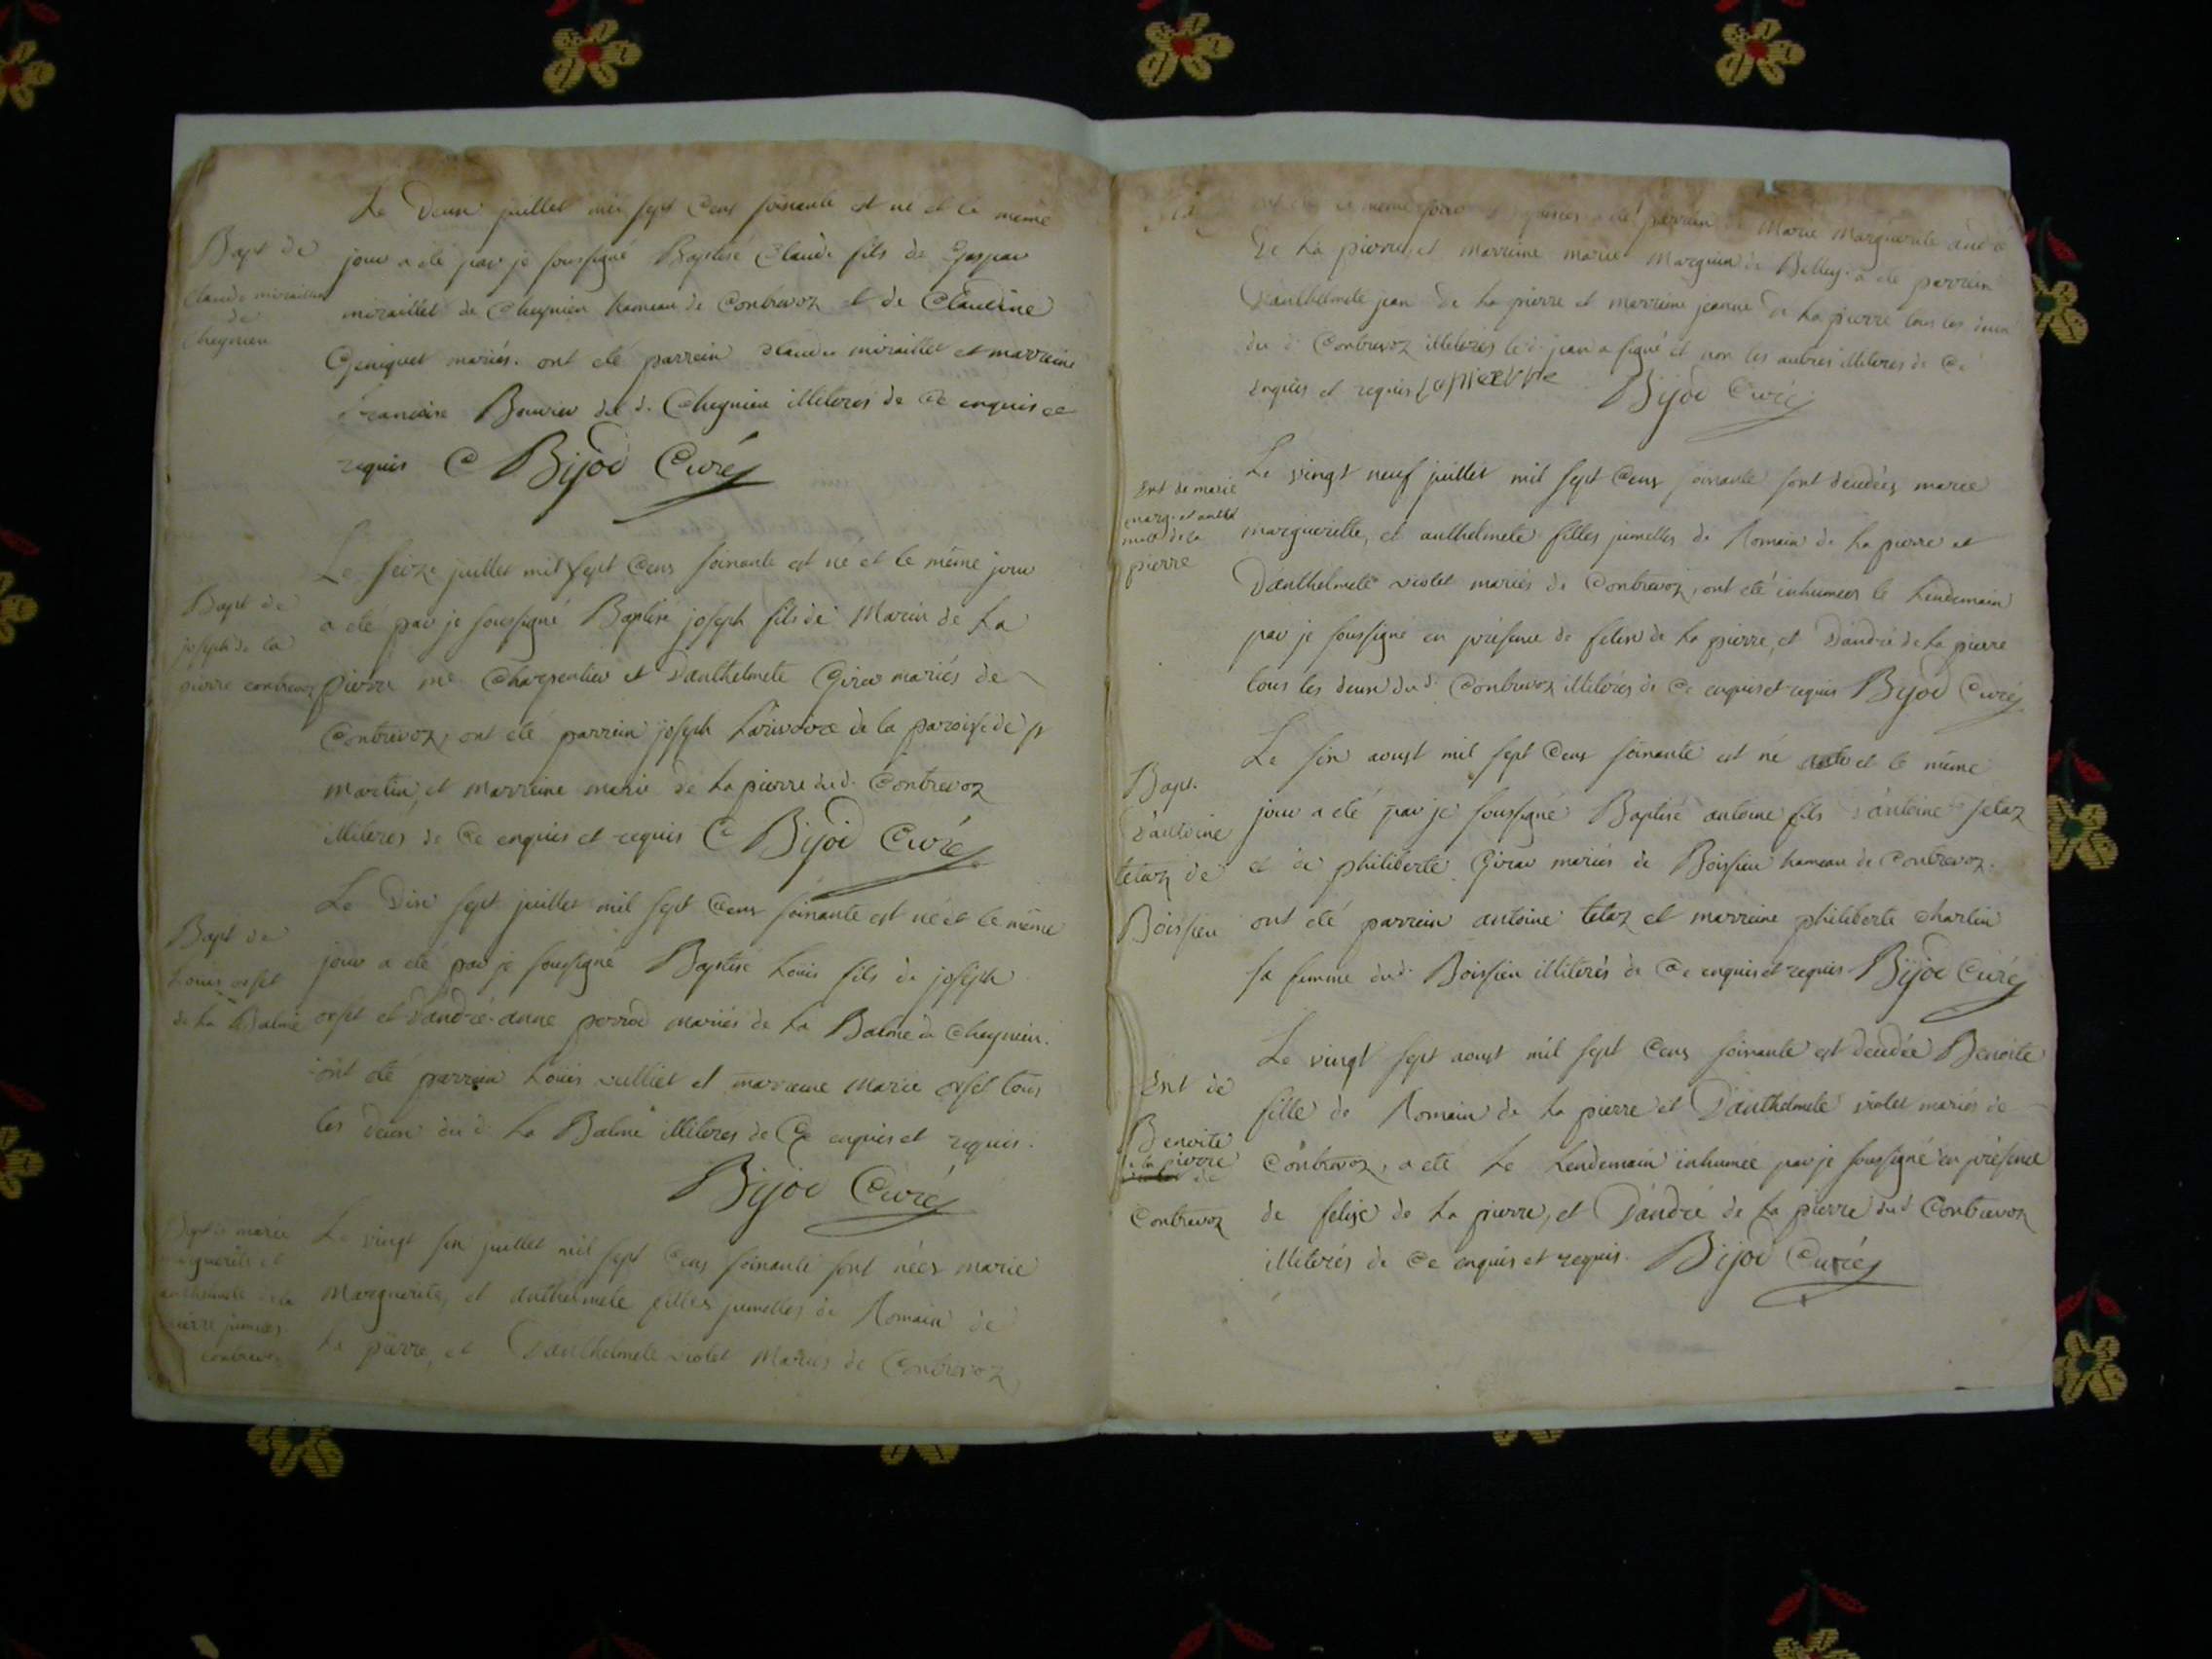 Le Deux juillet mil sept Cens soixante est né et le même
Bapt de
Claude miraillet
de
Cheynieu
jour a eté par je soussigné Baptisé Claude fils de Gaspar
miraillet de Cheynieu hameau de Contrevoz et de Claudine
Geniquet mariés. ont eté parrein Claude miraillet et marreine
francoise Bouvier du d. Cheynieu illiterés de Ce enquis et
requis Bijod Curé
Le seize juillet mil sept Cens soixante est né et le même jour
Bapt de
joseph de la
pierre contrevoz
a eté par je soussigné Baptisé joseph fils de Marin de La
pierre me Charpentier et D'anthelmete Girar mariés de
Contrevoz, ont eté parrein joseph de la paroisse de st
Martin, et Marreine marie de La pierre dud. Contrevoz
illiterés de Ce enquis et requis Bijod Curé
Le Dix sept juillet mil sept Cens soixante est né et le même
Bapt de
Louis orset
de La Balme
jour a eté par je soussigné Baptisé Louis fils de joseph
orset et D'andré-anne perrod mariés de La Balme de Cheynieu.
ont eté parrein Louis vulliet et marreine Marie orset tous
les deux du d. La Balme illiteres de Ce enquis et requis.
Bijod Curé
Bapt de marie
marguerite et
anthelmete de la
pierre jumelles
contrevoz
Le vingt six juillet mil sept Cens soixante sont nées marie
Marguerite, et anthelmete filles jumelles de Romain de
La pierre, et D'anthelmete violet Mariés de Contrevoz,
ont eté le même jour a eté parrein de Marie Marguerite andré
De La pierre, et marreine marie Marguin de Belley. a eté parrein
D'anthelmete jean de La pierre et marreine jeanne de La pierre tous les deux
du d. Contrevoz illiterés le d. jean a signé et non les autres illiteres de Ce
enquis et requis lapierre Bijod Curé
Ent de marie
marg. et anthel
mete de la
pierre
Le vingt neuf juillet mil sept Cens soixante sont decedées marie
marguerite, et anthelmete filles jumelles de Romain de La pierre et
D'anthelmete violet mariés de Contrevoz, ont eté inhumees le Lendemain
par je soussigné en présence de felix de La pierre, et D'andré de La pierre
tous les deux du d. Contrevoz illiterés de Ce enquis et requis Bijod Curé
Le six aoust mil sept Cens soixante est né et le même
Bapt.
D'antoine
tetaz de
Boissieu
jour a eté par je soussigné Baptisé antoine fils d'antoine tetaz
et de philiberte Girar mariés de Boissieu hameau de Contrevoz.
ont eté parrein antoine tetaz et marreine philiberte Charlin
sa femme dud. Boissieu illiterés de Ce enquis et requis Bijod Curé
Le vingt sept aoust mil sept Cens soixante est decedée Benoite
Ent de
Benoite
de la pierre
de
Contrevoz
fille de Romain de La pierre et D'anthelmete violet mariés de
Contrevoz, a eté Le Lendemain inhumée par je soussigné en présence
de felix de La pierre, et D'andré de La pierre dud Contrevoz
illiterés de Ce enquis et requis. Bijod Curé